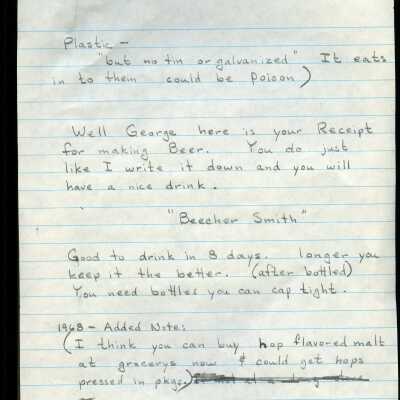 Plastic -
"but no tin or galvanized" It eats
in to them could be Poison)
Well George here is your Receipt
for making Beer. You do just
like I write it down and you will
have a nice drink.
"Beecher Smith"
Good to drink in 8 days. longer you
keep it the better. (after bottled)
You need bottles you can cap tight.
1968 - Added Note:
(I think you can buy hop flavored malt
at grocerys now & could get hops
pressed in pkgs)